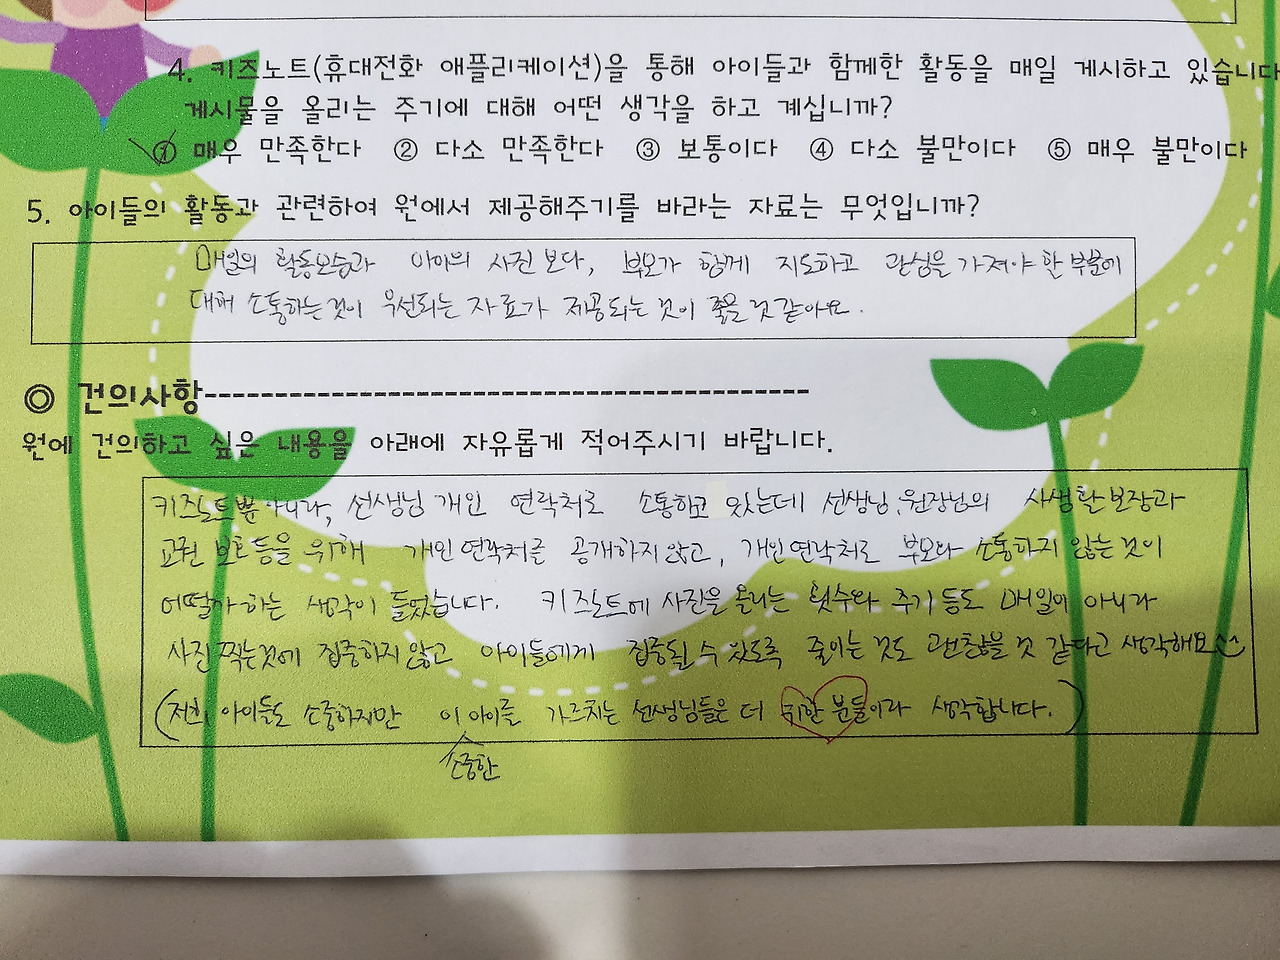 4. 키즈노트(휴대전화 애플리케이션)을 통해 아이들과 함께한 활동을 매일 게시하고 있습니다
게시물을 올리는 주기에 대해 어떤 생각을 하고 계십니까?
① 매우 만족한다 ② 다소 만족한다 ③ 보통이다 ④ 다소 불만이다 ⑤ 매우 불만이다
5. 아이들의 활동과 관련하여 원에서 제공해주기를 바라는 자료는 무엇입니까?
매일의 활동모습과 아이의 사진 보다, 부모가 함께 지도하고 관심을 가져야 할 부분에
대해 소통하는 것이 우선되는 자료가 제공되는 것이 좋을 것 같아요.
◎ 건의사항--------------------------------------------
원에 건의하고 싶은 내용을 아래에 자유롭게 적어주시기 바랍니다.
키즈노트뿐 아니라, 선생님 개인 연락처로 소통하고 있는데 선생님, 원장님의 사생활 보장과
교권 보호 등을 위해 개인 연락처를 공개하지 않고, 개인 연락처로 부모와 소통하지 않는 것이
어떨까 하는 생각이 들었습니다. 키즈노트에 사진을 올리는 횟수와 주기 등도 매일이 아니라
사진 찍는것에 집중하지 않고 아이들에게 집중될 수 있도록 줄이는 것도 괜찮을 것 같다고 생각해요^^
(저희 아이들도 소중하지만 이 아이를 가르치는 선생님들은 더 귀한 분들이라 생각합니다.)
소중한